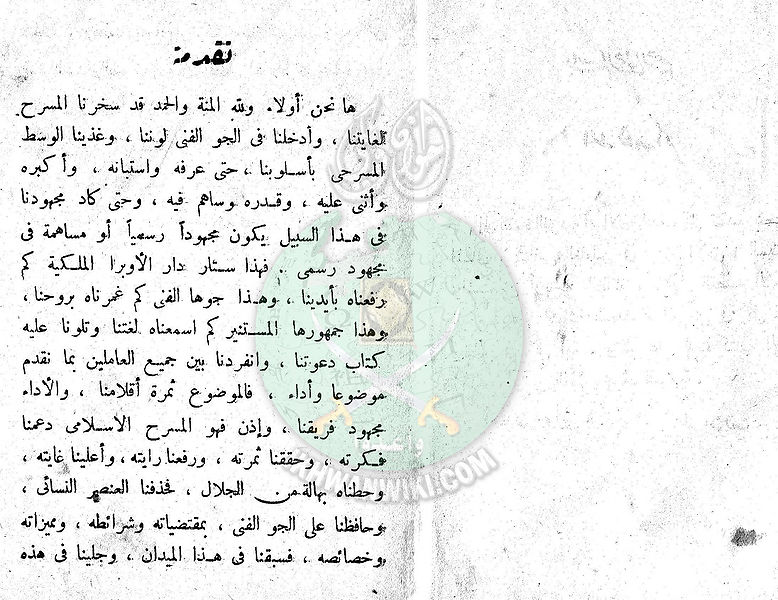 تقدمة
ها نحن أولاء. ولله المنة والحمد قد سخرنا المسرح
لغايتنا ، وأدخلنا فى الجو الفنى لوننا ، وغذينا الوسط
المسرحى بأسلوبنا ، حتى عرفه واستبانه ، وأكبره
وأثنى عليه ، وقدره وساهم فيه ، وحتى كاد مجهودنا
فى هذا السبيل يكون مجهوداً رسمياً أو مساهمة فى
مجهود رسمى . فهذا ستار دار الأوبرا الملكية كم
رفعناه بأيدينا ، وهذا جوها الفنى كم غمرناه بروحنا ،
وهذا جمهورها المستنير كم اسمعناه لغتنا وتلونا عليه
كتاب دعوتنا ، وانفردنا بين جميع العاملين بما نقدم
موضوعا وأداء ، فالموضوع ثمرة أقلامنا ، والأداء
مجهود فريقنا ، وإذن فهو المسرح الاسلامى دعمنا
فكرته ، وحققنا ثمرته ، ورفعنا رايته ، وأعلينا غايته ،
وحطناه بهالة من الجلال ، فحذفنا العنصر النسائى ،
وحافظنا على الجو الفنى ، بمقتضياته وشرائطه ، ومميزاته
وخصائصه ، فسبقنا فى هذا الميدان ، وجلينا فى هذه
الإخوان المسلمون
وأعدوا
IKHWANWIKI.COM